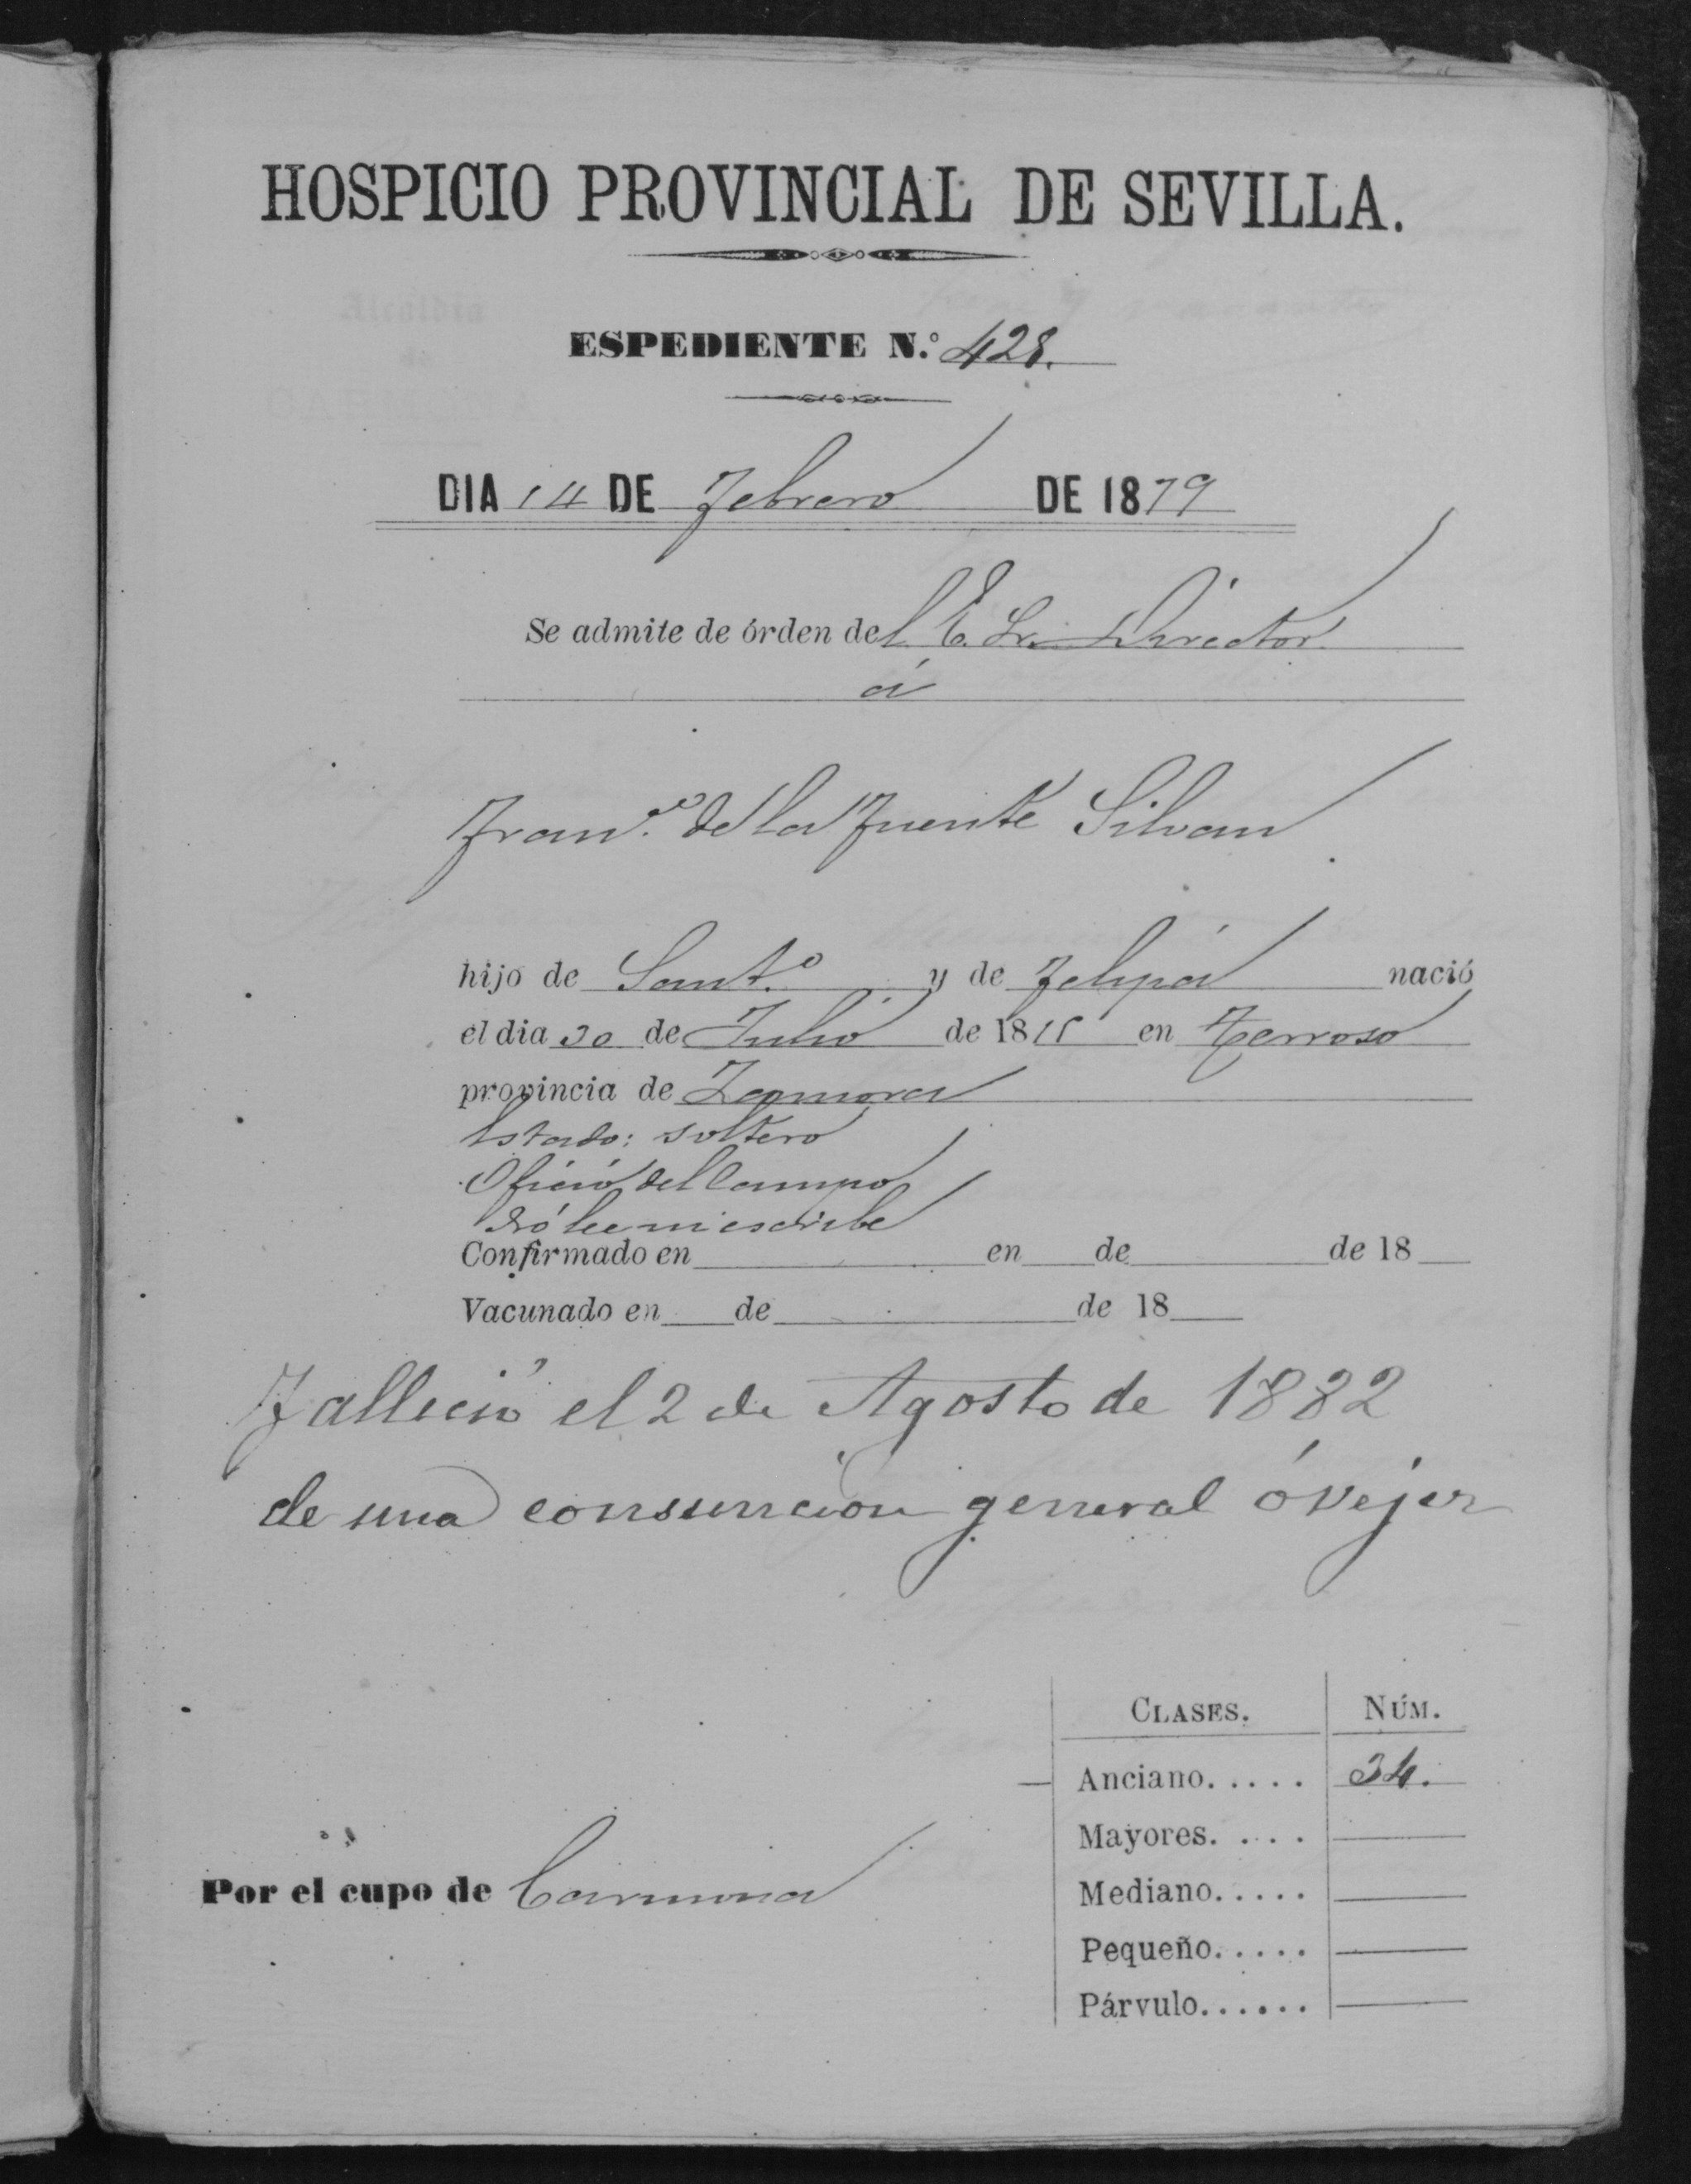 HOSPICIO PROVINCIAL DE SEVILLA.
ESPEDIENTE N.º 428.
DIA 14 DE Febrero DE 1879
Se admite de órden del E. Sr. Director
á
Fran.co de la Fuente Silvan
hijo de Sant.o y de Felipa nació
el dia 30 de Julio de 18 en Terroso
provincia de Zamora
Estado: soltero
Oficio del Campo
Nó lee ni escribe
Confirmado en en de de 18
Vacunado en de de 18
Falleció el 2 de Agosto de 1882
de una consuncion general ó vejez
CLASES. NÚM.
Anciano..... 34.
Mayores.....
Mediano.....
Pequeño.....
Párvulo......
Por el cupo de Carmona